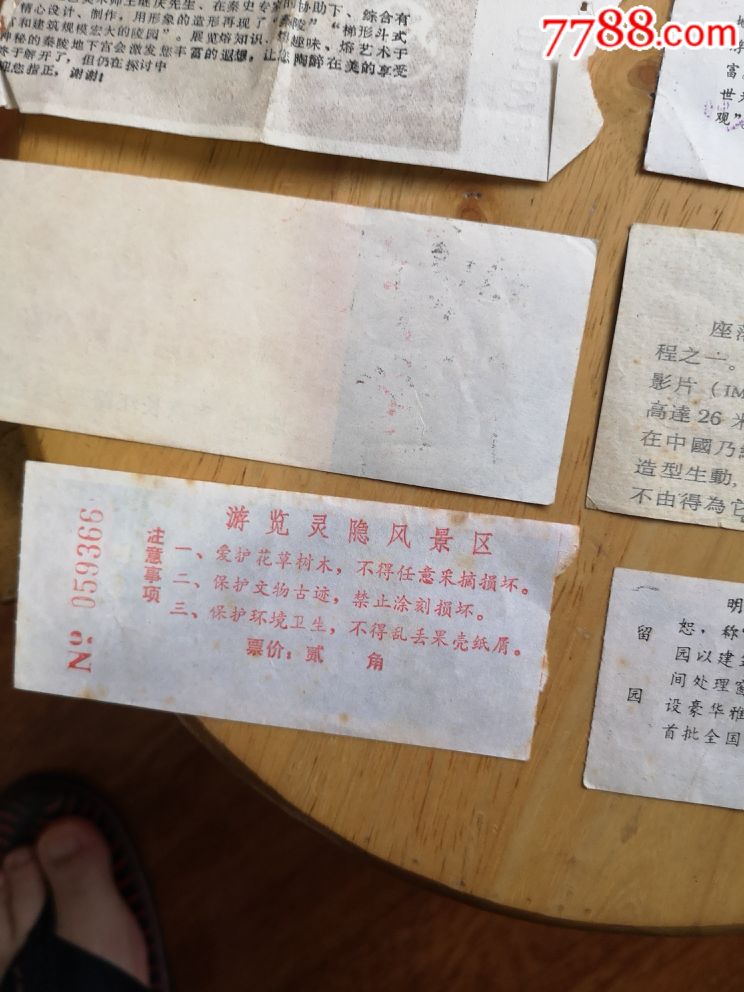 7788.com
美术师王继庆先生、在秦史专家的协助下、综合有
精心设计、制作，用形象的造形再现了“秦陵”“梯形斗式
和建筑规模宏大的陵园”。展览熔知识、趣味、熔艺术于
神秘的秦陵地下宫会激发您丰富的遐想，让您陶醉在美的享受
终于解开了，但仍在探讨中
迎您指正，谢谢！
富
世
观”
座
程之一。
影片（IM
高達26米
在中國乃
造型生動，
不由得為它
游览灵隐风景区
注意事项
一、爱护花草树木，不得任意采摘损坏。
二、保护文物古迹，禁止涂刻损坏。
三、保护环境卫生，不得乱丢果壳纸屑。
票价：贰 角
№ 059366
留园
明
恕，称“
园以建
间处理
设豪华雅
首批全国